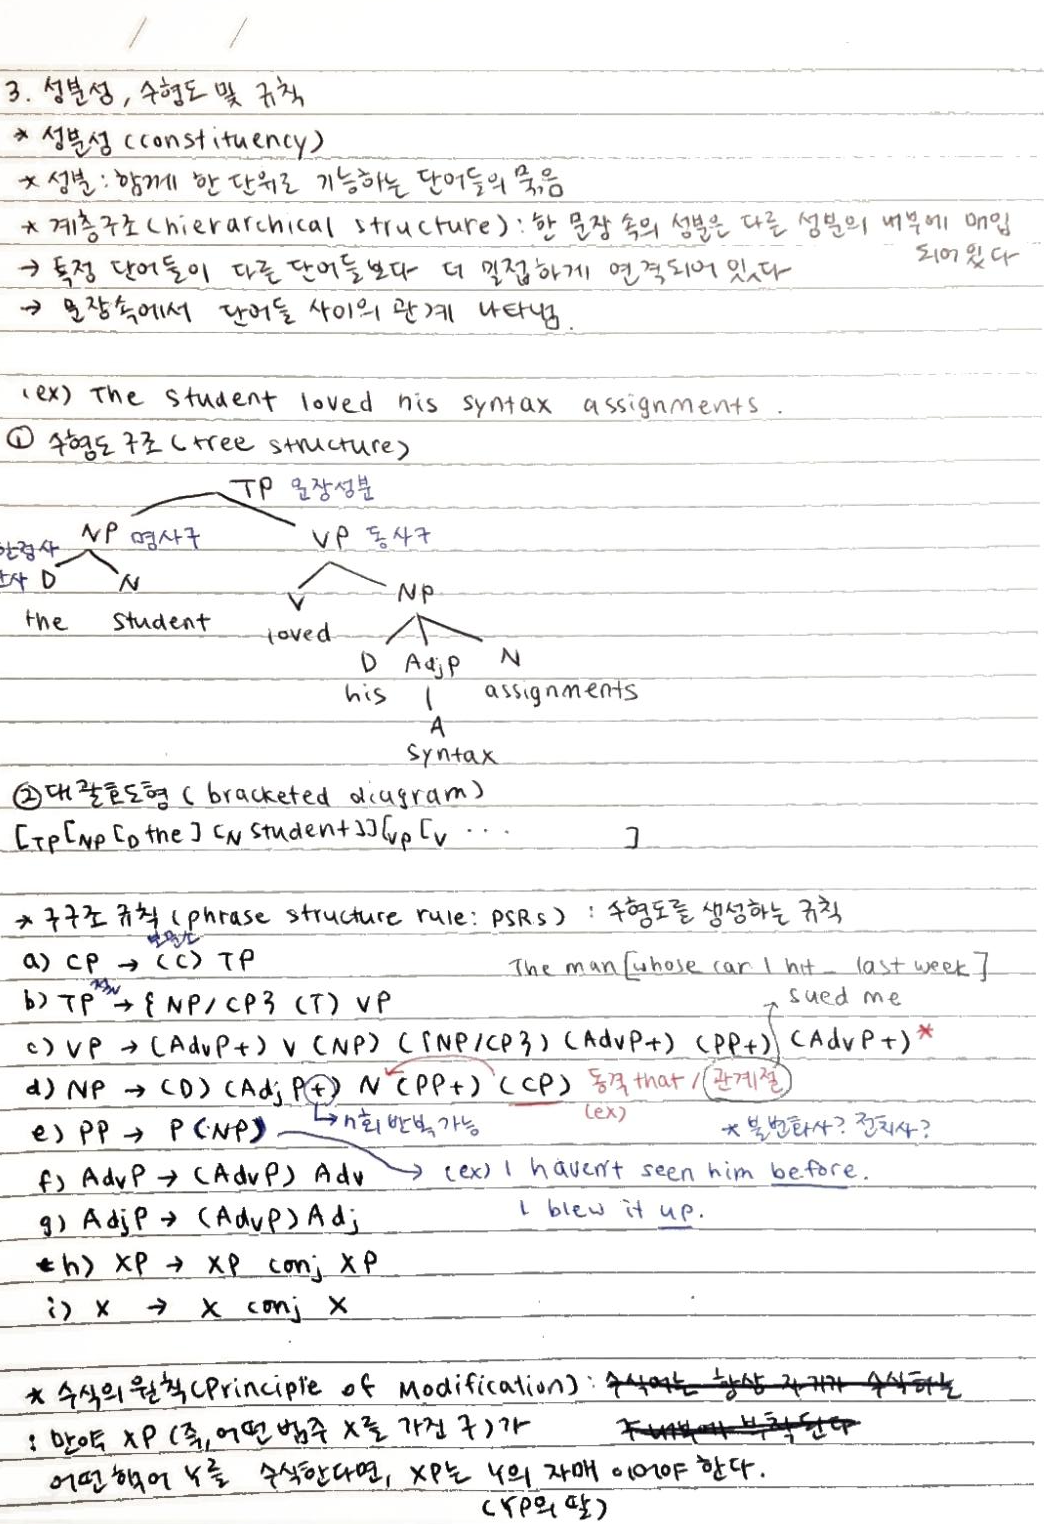 3. 성분성, 수형도 및 규칙
* 성분성 (constituency)
* 성분 : 함께 한 단위로 기능하는 단어들의 묶음
* 계층구조 (hierarchical structure) : 한 문장 속의 성분은 다른 성분의 내부에 매입
되어 있다
→ 특정 단어들이 다른 단어들보다 더 밀접하게 연결되어 있다
→ 문장속에서 단어들 사이의 관계 나타냄.
(ex) The student loved his syntax assignments.
① 수형도 구조 (tree structure)
TP 문장성분
NP 명사구 VP 동사구
한정사
D N V NP
the student loved
D AdjP N
his assignments
A
syntax
② 대괄호도형 ( bracketed diagram)
[TP[NP[D the] [N student]][VP[V ... ]
* 구구조 규칙 (phrase structure rule : PSRs) : 수형도를 생성하는 규칙
a) CP → (C) TP
The man [whose car I hit _ last week]
sued me
b) TP → { NP/CP} (T) VP
c) VP → (AdvP+) V (NP) ({NP/CP}) (AdvP+) (PP+) (AdvP+)*
d) NP → (D) (AdjP+) N (PP+) (CP) 동격 that / 관계절
(ex)
→ n회 반복 가능
e) PP → P (NP)
* 불변화사? 전치사?
f) AdvP → (AdvP) Adv
→ (ex) I haven't seen him before.
I blew it up.
g) AdjP → (AdvP) Adj
* h) XP → XP conj XP
i) X → X conj X
* 수식의 원칙 (Principle of Modification) : 수식어는 항상 자기가 수식하는
구 내부에 부착된다
: 만약 XP (즉, 어떤 범주 X를 가진 구) 가
어떤 핵어 Y를 수식한다면, XP는 Y의 자매 이어야 한다.
(YP의 딸)